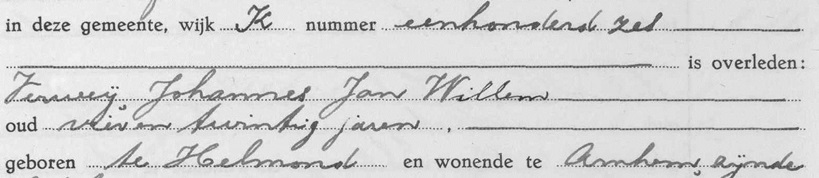 in deze gemeente, wijk K nummer eenhonderd zes
is overleden:
Verweij, Johannes Jan Willem
oud vier en twintig jaren,
geboren te Helmond en wonende te Arnhem, zijnde